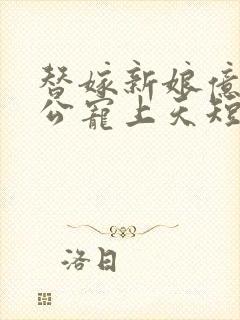 替嫁新娘亿
公宠上天短
洛日